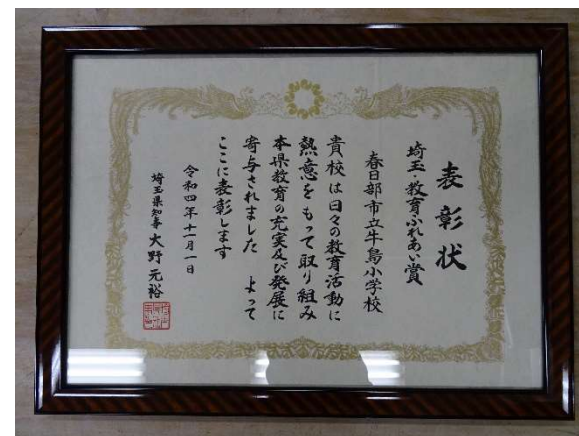 表彰状
埼玉・教育ふれあい賞
春日部市立牛島小学校
貴校は日々の教育活動に
熱意をもって取り組み
本県教育の充実及び発展に
寄与されました　よって
ここに表彰します
令和四年十一月一日
埼玉県知事 大野元裕